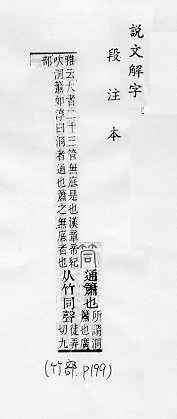 說文解字
段注本
筒
通簫也
所謂洞
簫也廣
雅云大者二十三管無底是也漢章帝紀
吹洞簫如淳曰洞者通也簫之無底者也
从竹同聲
徒弄
切九
部
(竹部. P199)